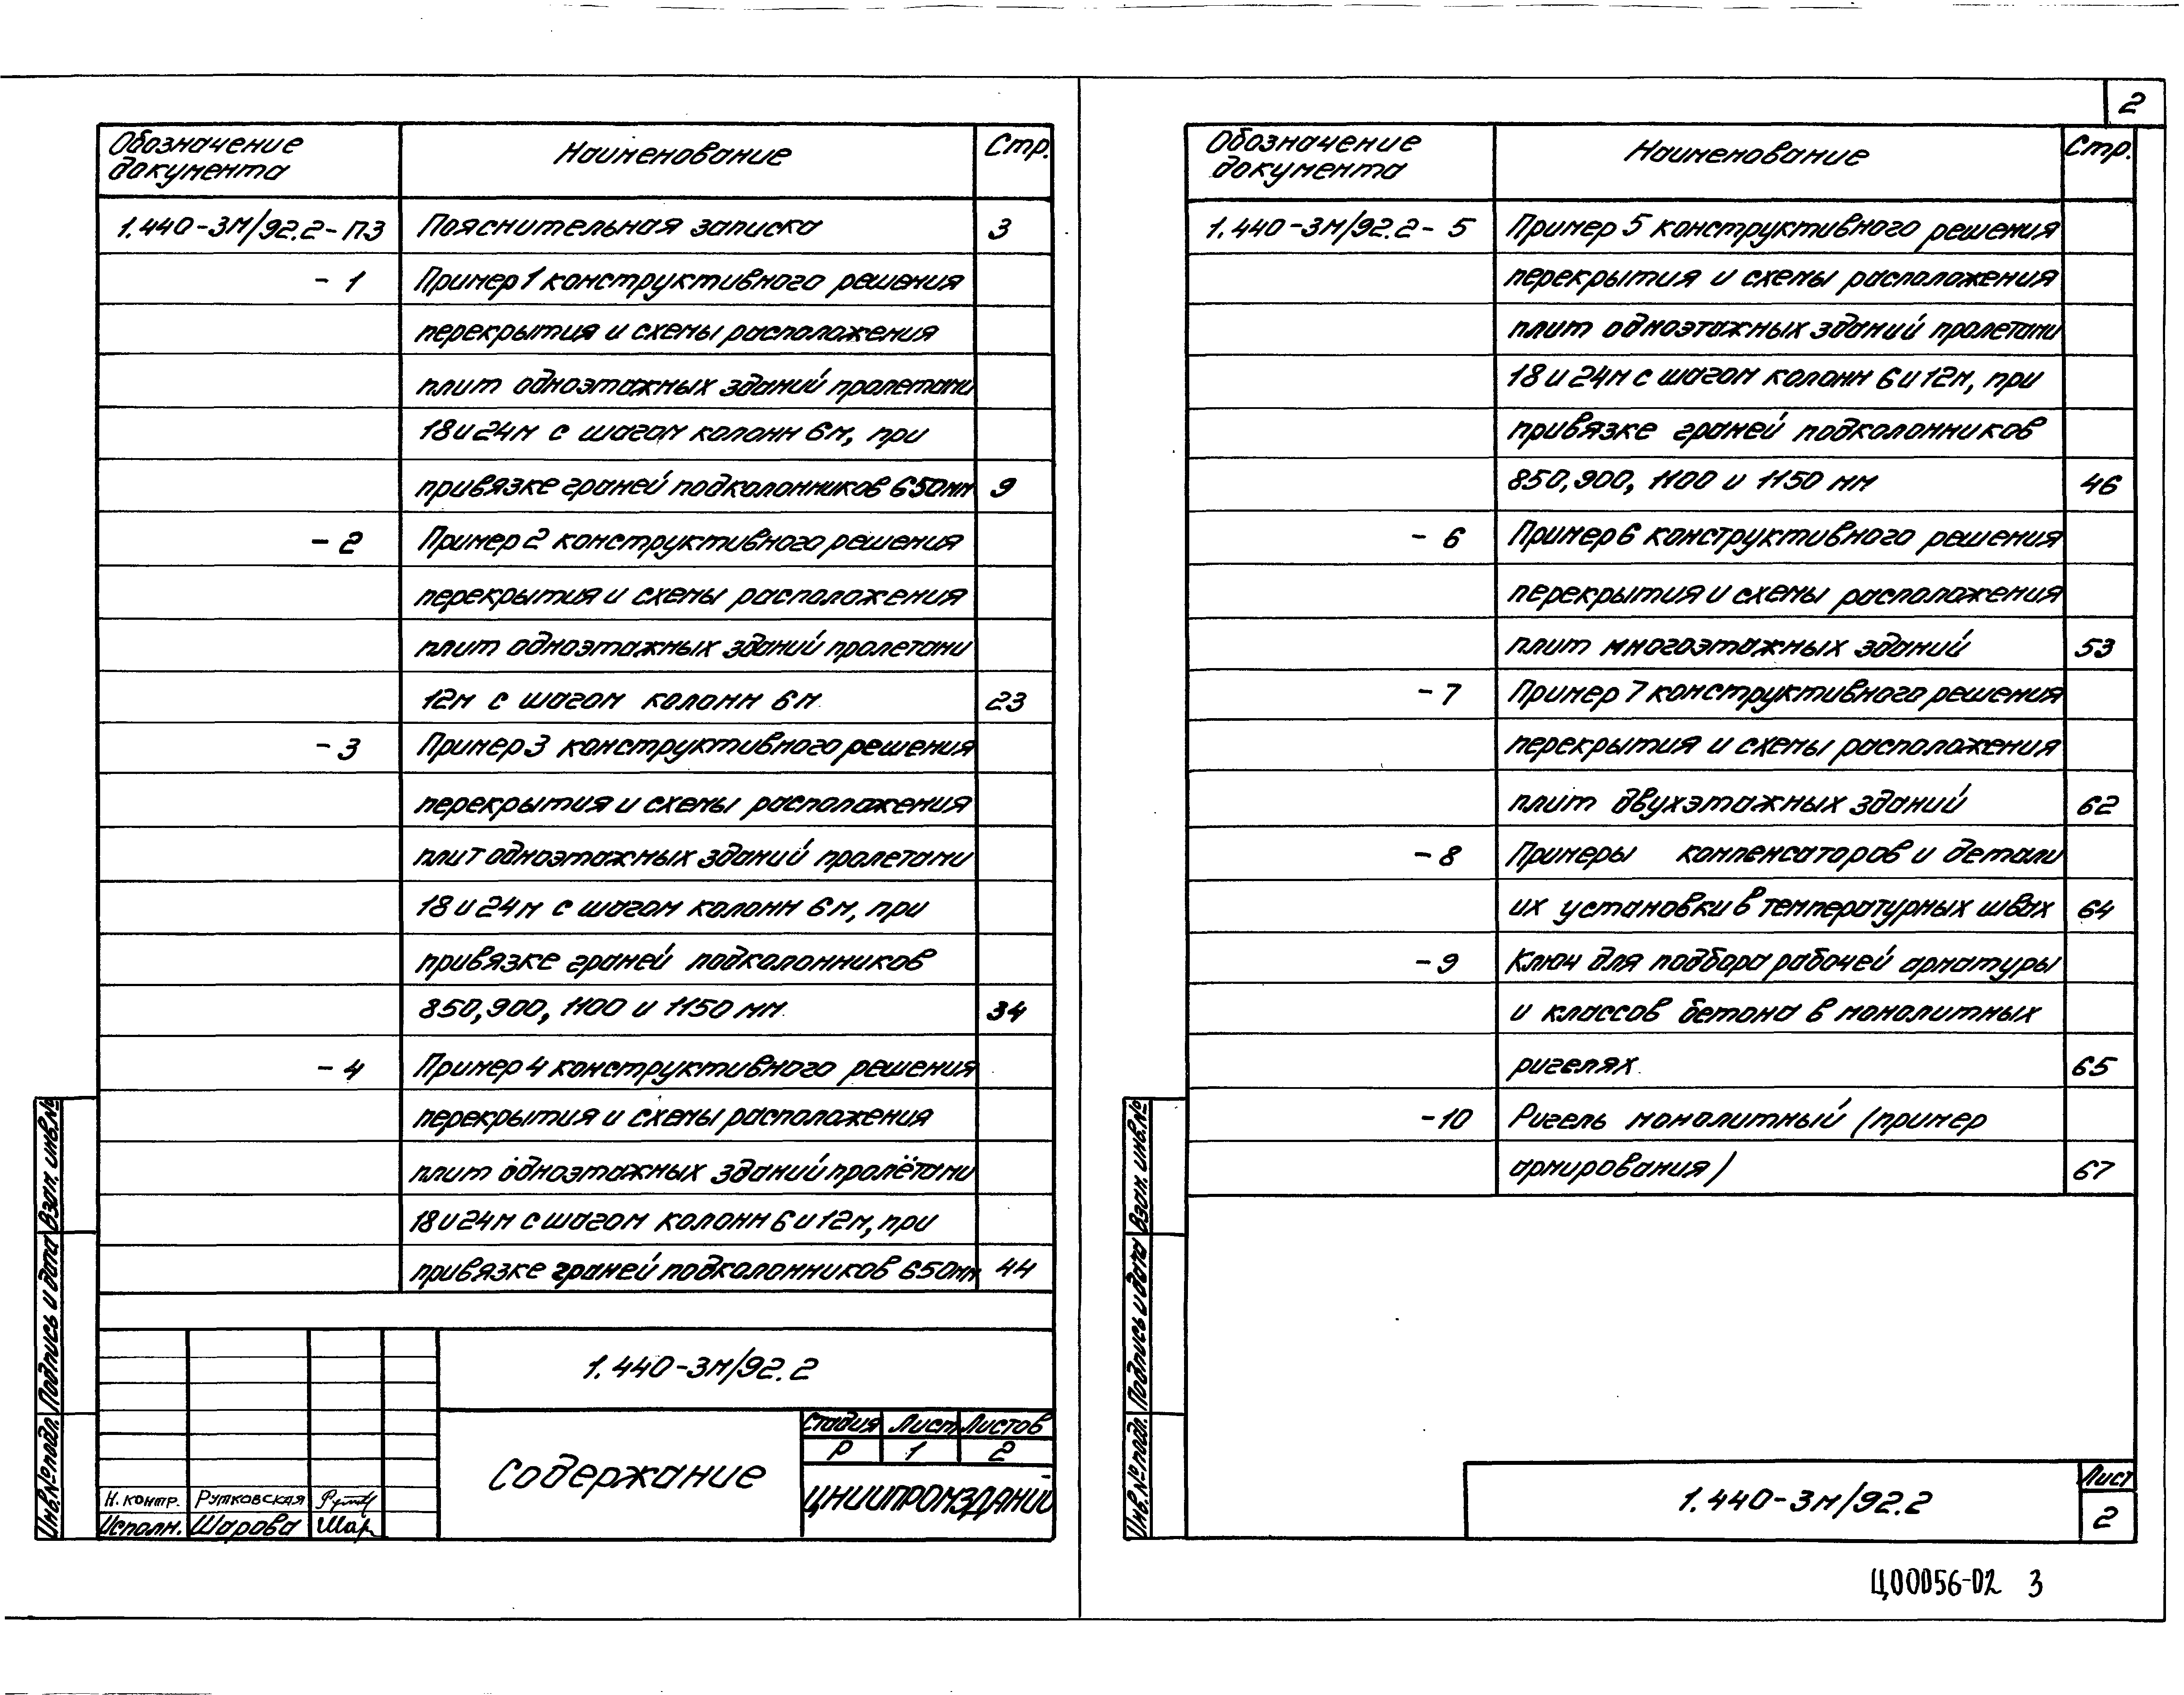 2
Обозначение документа Наименование Стр.
1.440-3М/92.2-ПЗ Пояснительная записка 3
- 1 Пример 1 конструктивного решения
перекрытия и схемы расположения
плит одноэтажных зданий пролетами
18 и 24м с шагом колонн 6м, при
привязке граней подколонников 650мм 9
- 2 Пример 2 конструктивного решения
перекрытия и схемы расположения
плит одноэтажных зданий пролетами
12м с шагом колонн 6м 23
- 3 Пример 3 конструктивного решения
перекрытия и схемы расположения
плит одноэтажных зданий пролетами
18 и 24м с шагом колонн 6м, при
привязке граней подколонников
850, 900, 1100 и 1150 мм. 34
- 4 Пример 4 конструктивного решения
перекрытия и схемы расположения
плит одноэтажных зданий пролётами
18 и 24м с шагом колонн 6 и 12м, при
привязке граней подколонников 650мм 44
1.440-3М/92.2
Содержание
Стадия Лист Листов
Р 1 2
ЦНИИПРОМЗДАНИЙ
Н. контр. Рутковская
Исполн. Шарова Шар
Взам. инв.№
Подпись и дата
Инв.№ подл.
Обозначение документа Наименование Стр.
1.440-3М/92.2- 5 Пример 5 конструктивного решения
перекрытия и схемы расположения
плит одноэтажных зданий пролетами
18 и 24м с шагом колонн 6 и 12м, при
привязке граней подколонников
850, 900, 1100 и 1150 мм 46
- 6 Пример 6 конструктивного решения
перекрытия и схемы расположения
плит многоэтажных зданий 53
- 7 Пример 7 конструктивного решения
перекрытия и схемы расположения
плит двухэтажных зданий 62
- 8 Примеры компенсаторов и детали
их установки в температурных швах 64
- 9 Ключ для подбора рабочей арматуры
и классов бетона в монолитных
ригелях. 65
- 10 Ригель монолитный (пример
армирования) 67
Взам. инв.№
Подпись и дата
Инв.№ подл.
1.440-3м/92.2
Лист
2
Ц00056-02 3